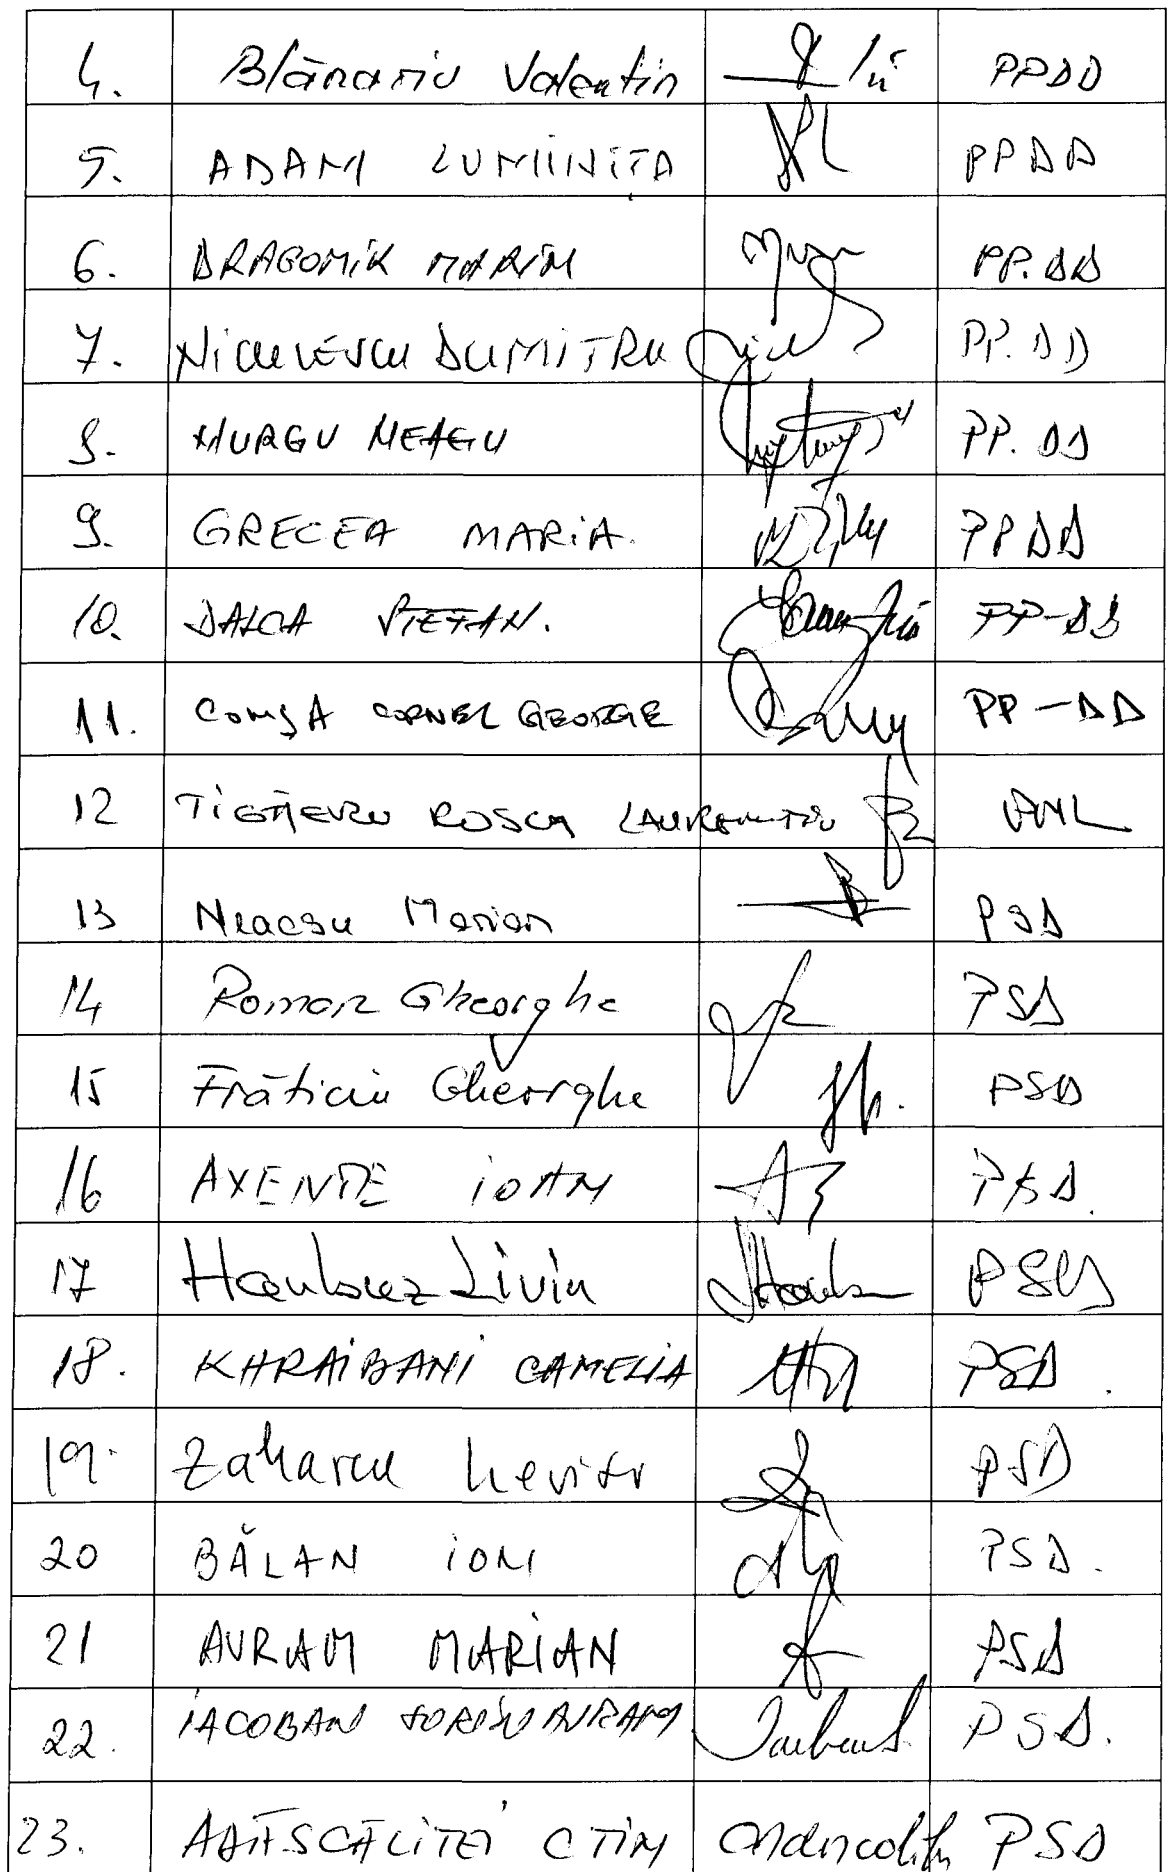 4. Blănariu Valentin PPDD
5. ADAM LUMINIȚA PPDD
6. DRAGOMIR MARIM PP.DD
7. NICULESCU DUMITRU PP.DD
8. MURGU NEAGU PP.DD
9. GRECEA MARIA. PPDD
10. DALCA ȘTEFAN. PP-DD
11. COMȘA CORNEL GEORGE PP-DD
12 ROSCA LAURENTIU
13 Neacsu Marian PSD
14 Roman Gheorghe PSD
15 Frăticiu Gheorghe PSD
16 AXENTE IOAN PSD.
17 Haarbuez Liviu PSD
18. KHRAIBANI CAMELIA PSD.
19. Zaharcu PSD
20 BĂLAN ION PSD.
21 AVRAM MARIAN PSD
22. IACOBAN SORIN AVRAM PSD.
23. ADĂSCĂLIȚEI CTIN PSD